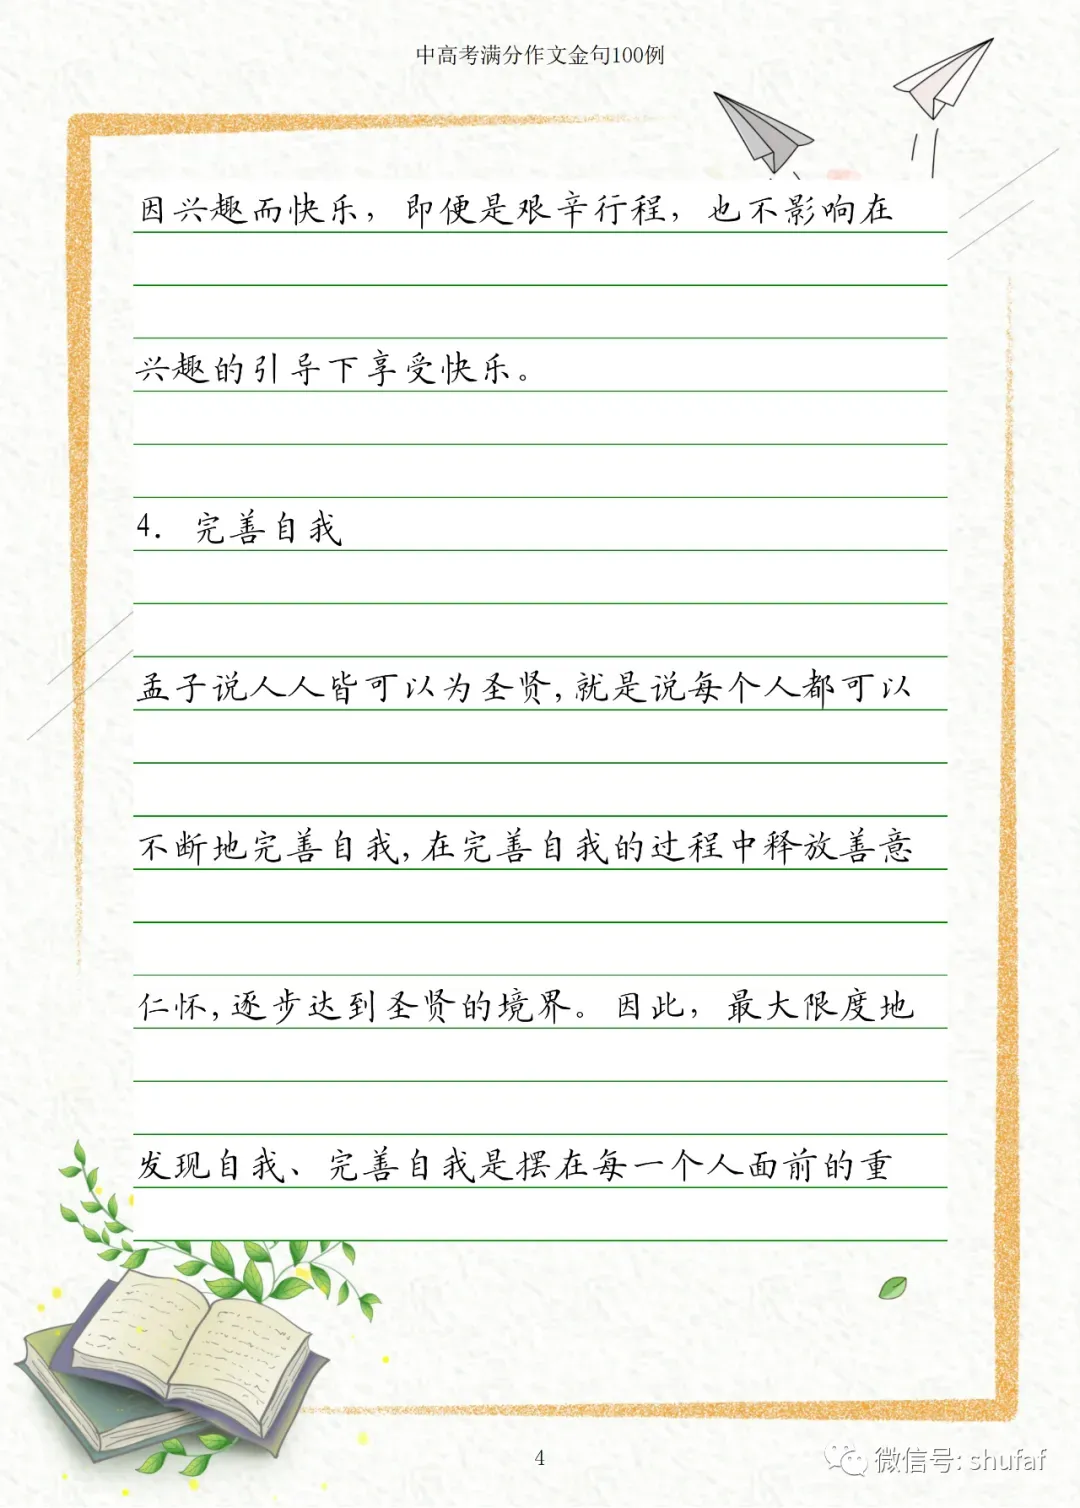 中高考满分作文金句100例
因兴趣而快乐，即便是艰辛行程，也不影响在
兴趣的引导下享受快乐。
4. 完善自我
孟子说人人皆可以为圣贤,就是说每个人都可以
不断地完善自我,在完善自我的过程中释放善意
仁怀,逐步达到圣贤的境界。因此，最大限度地
发现自我、完善自我是摆在每一个人面前的重
4
微信号: shufaf